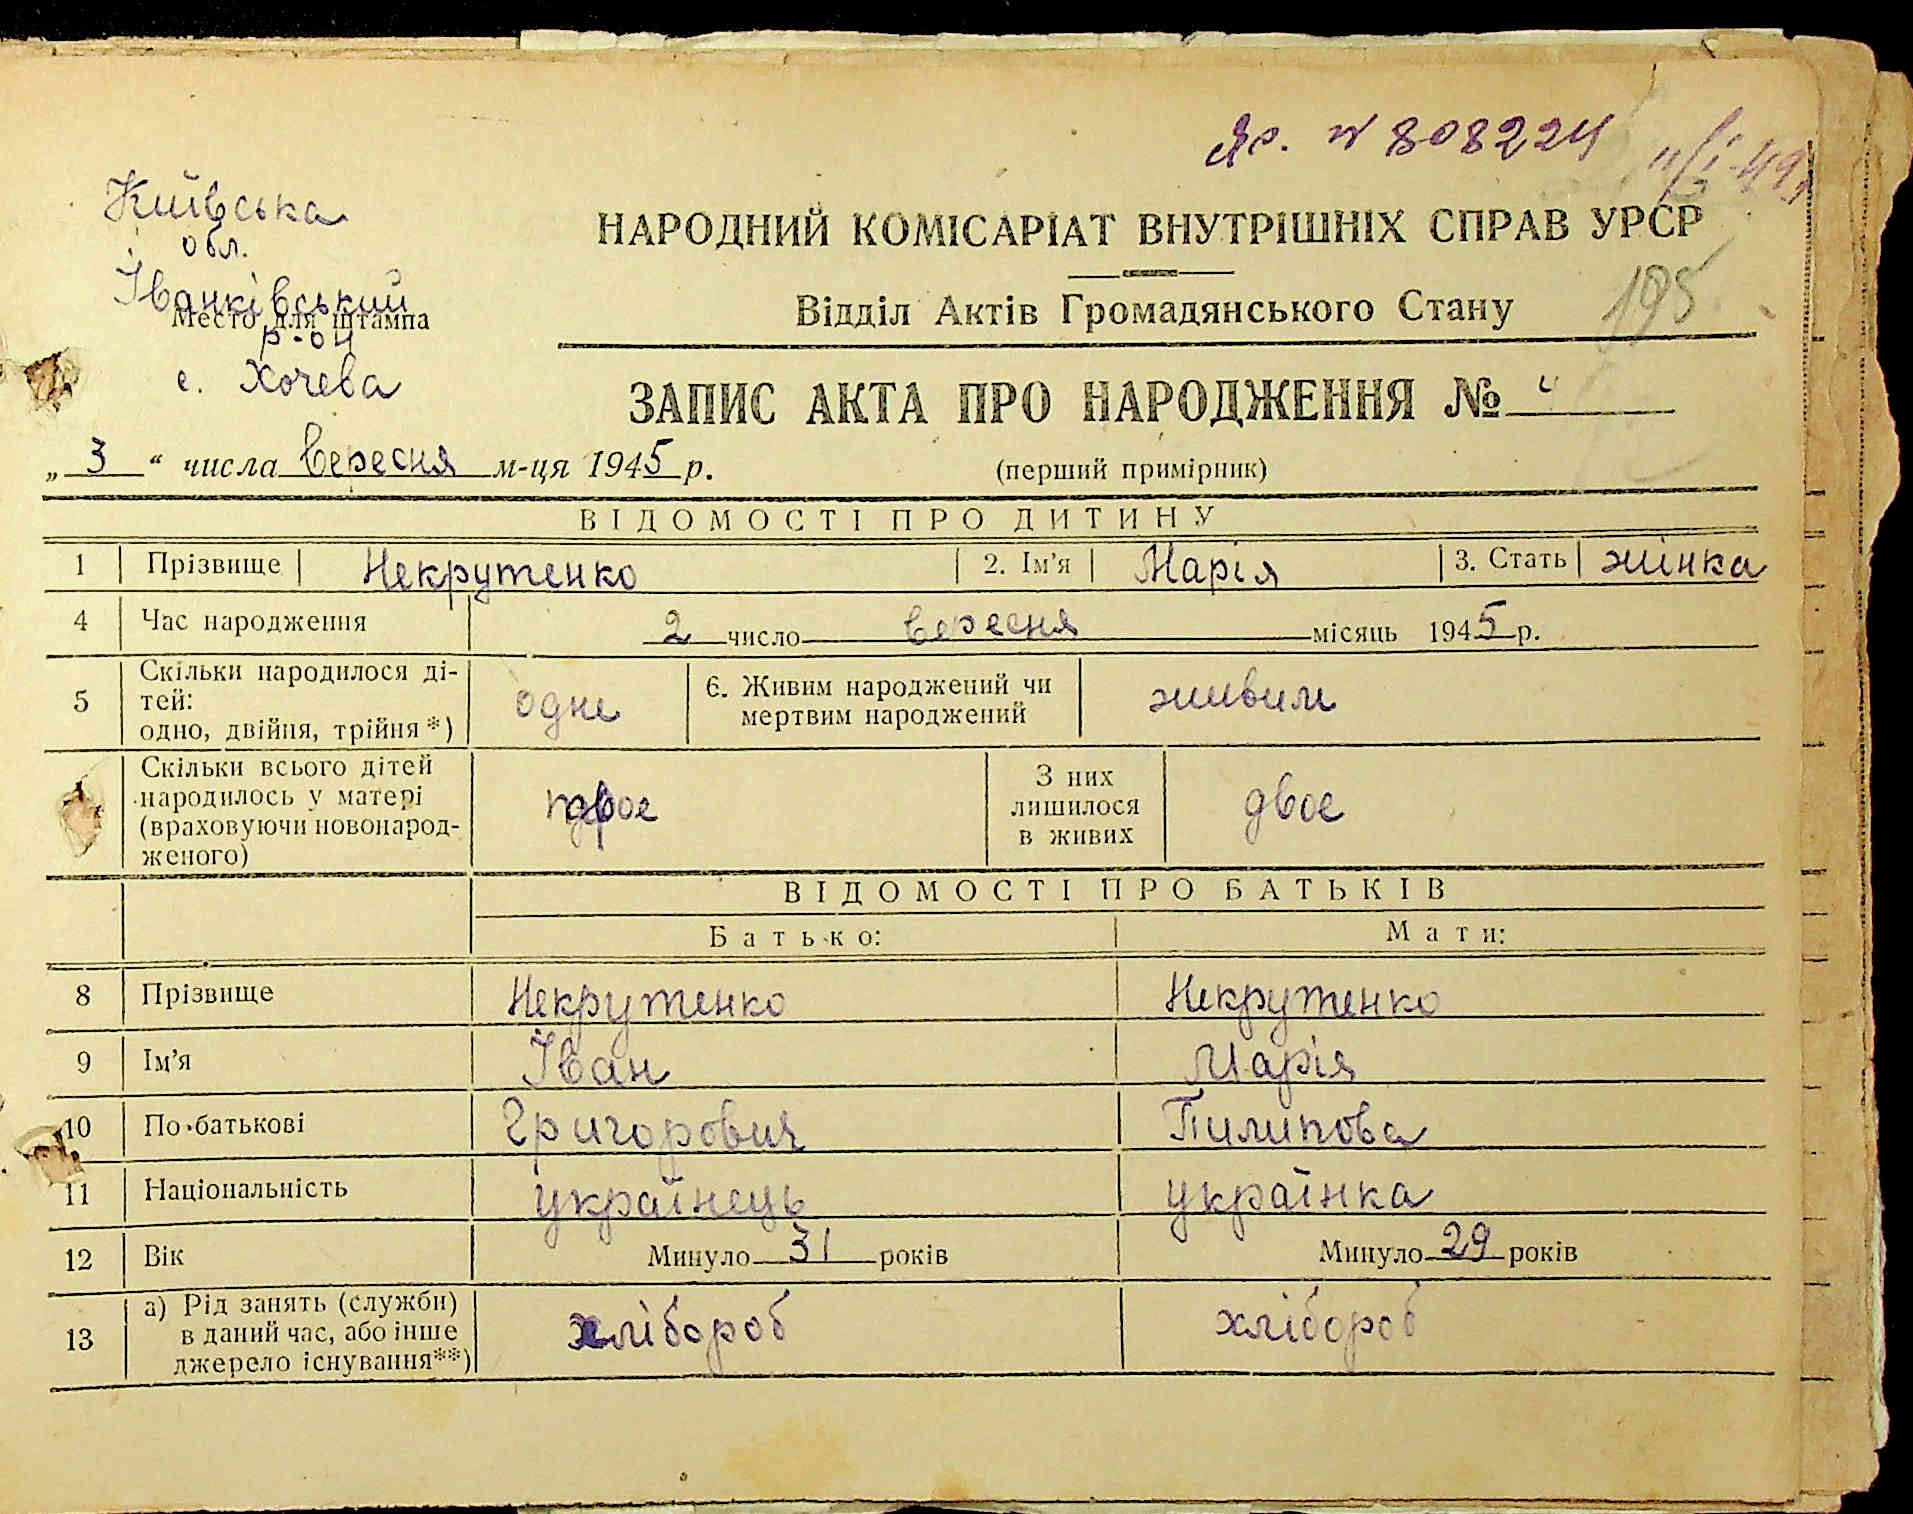 Яс. № 808224 11/I 49 р
Київська
обл.
Іванківський
Место для штампа
р-он
с. Хочева
НАРОДНИЙ КОМІСАРІАТ ВНУТРІШНІХ СПРАВ УРСР
195
Відділ Актів Громадянського Стану
ЗАПИС АКТА ПРО НАРОДЖЕННЯ №
„ 3 “ числа вересня м-ця 1945 р. (перший примірник)
ВІДОМОСТІ ПРО ДИТИНУ
1 Прізвище Некрутенко 2. Ім’я Марія 3. Стать жінка
4 Час народження 2 число вересня місяць 1945 р.
5 Скільки народилося ді-
тей:
одно, двійня, трійня *) одне 6. Живим народжений чи
мертвим народжений живим
Скільки всього дітей
народилось у матері
(враховуючи новонарод-
женого) двое З них
лишилося
в живих двое
ВІДОМОСТІ ПРО БАТЬКІВ
Батько: Мати:
8 Прізвище Некрутенко Некрутенко
9 Ім’я Іван Марія
10 По-батькові Григорович Пилипова
11 Національність українець українка
12 Вік Минуло 31 років Минуло 29 років
13 а) Рід занять (служби)
в даний час, або інше
джерело існування**) хлібороб хлібороб